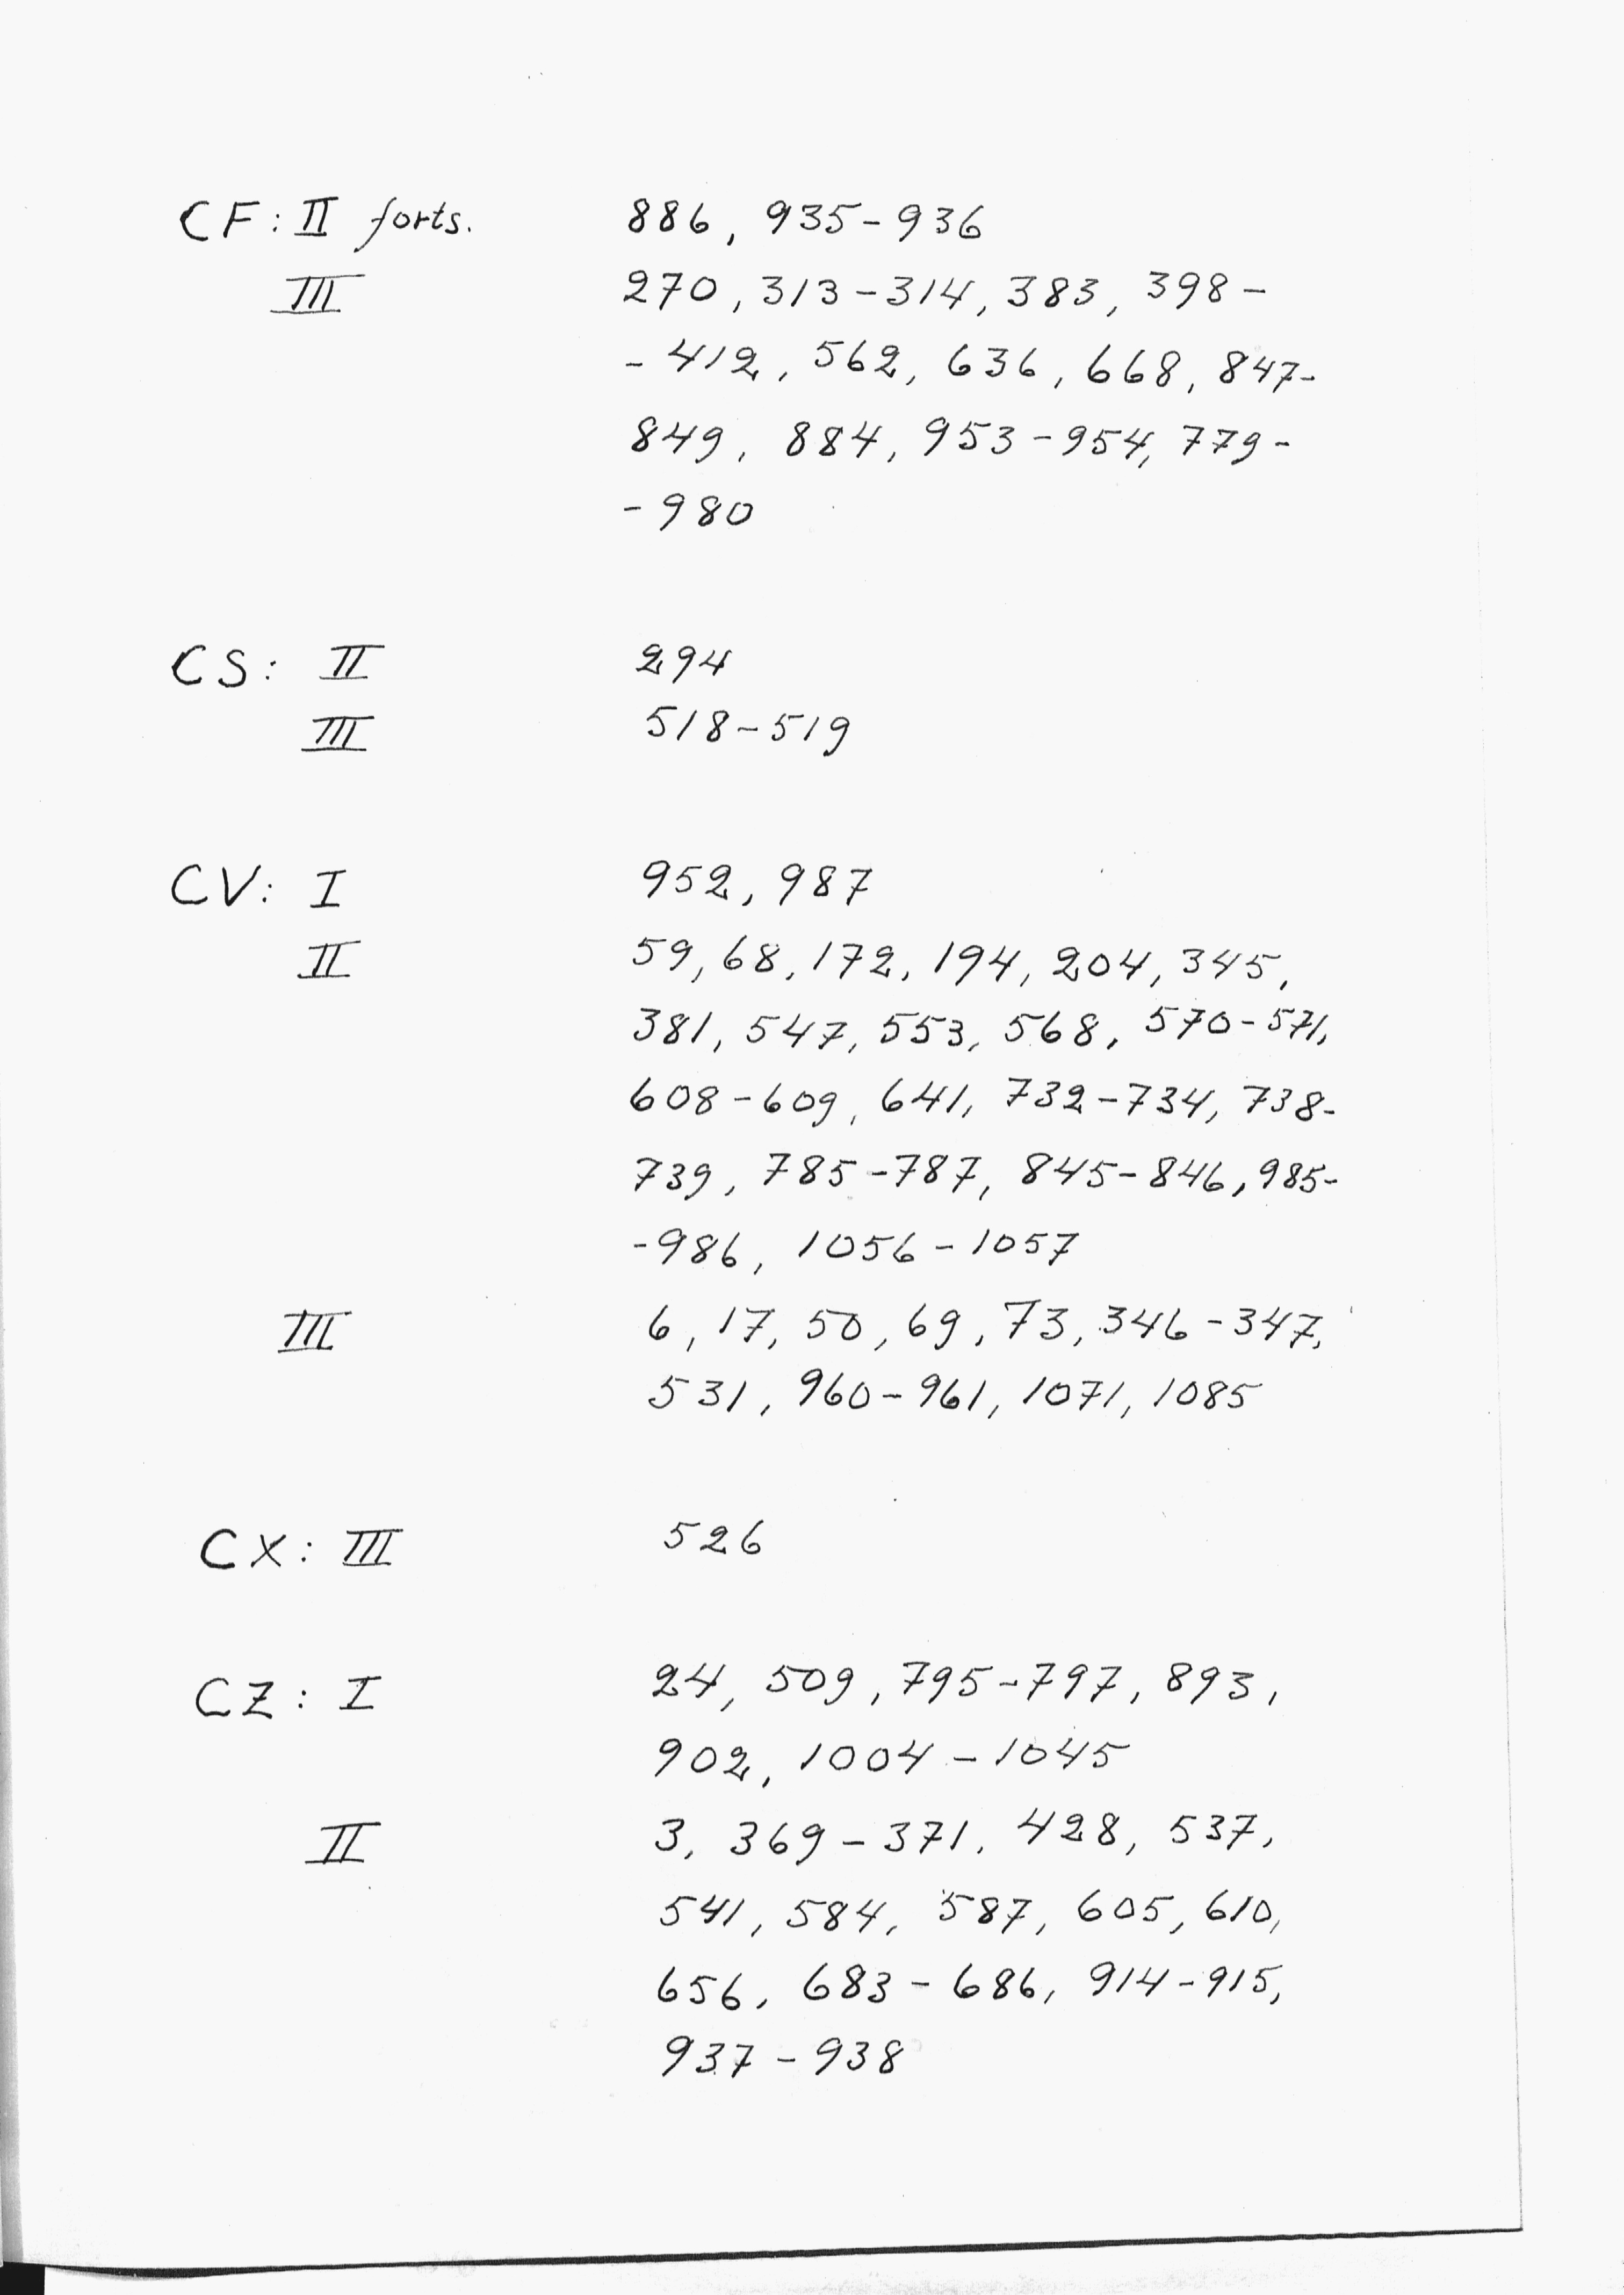 CF: II forts. 886, 935-936
III 270, 313-314, 383, 398-
-412, 562, 636, 668, 847-
849, 884, 953-954, 779-
-980
CS: II 294
III 518-519
CV: I 952, 987
II 59, 68, 172, 194, 204, 345,
381, 547, 553, 568, 570-571,
608-609, 641, 732-734, 738-
739, 785-787, 845-846, 985-
-986, 1056-1057
III 6, 17, 50, 69, 73, 346-347,
531, 960-961, 1071, 1085
CX: III 526
CZ: I 24, 509, 795-797, 893,
902, 1004-1045
II 3, 369-371, 428, 537,
541, 584, 587, 605, 610,
656, 683-686, 914-915,
937-938